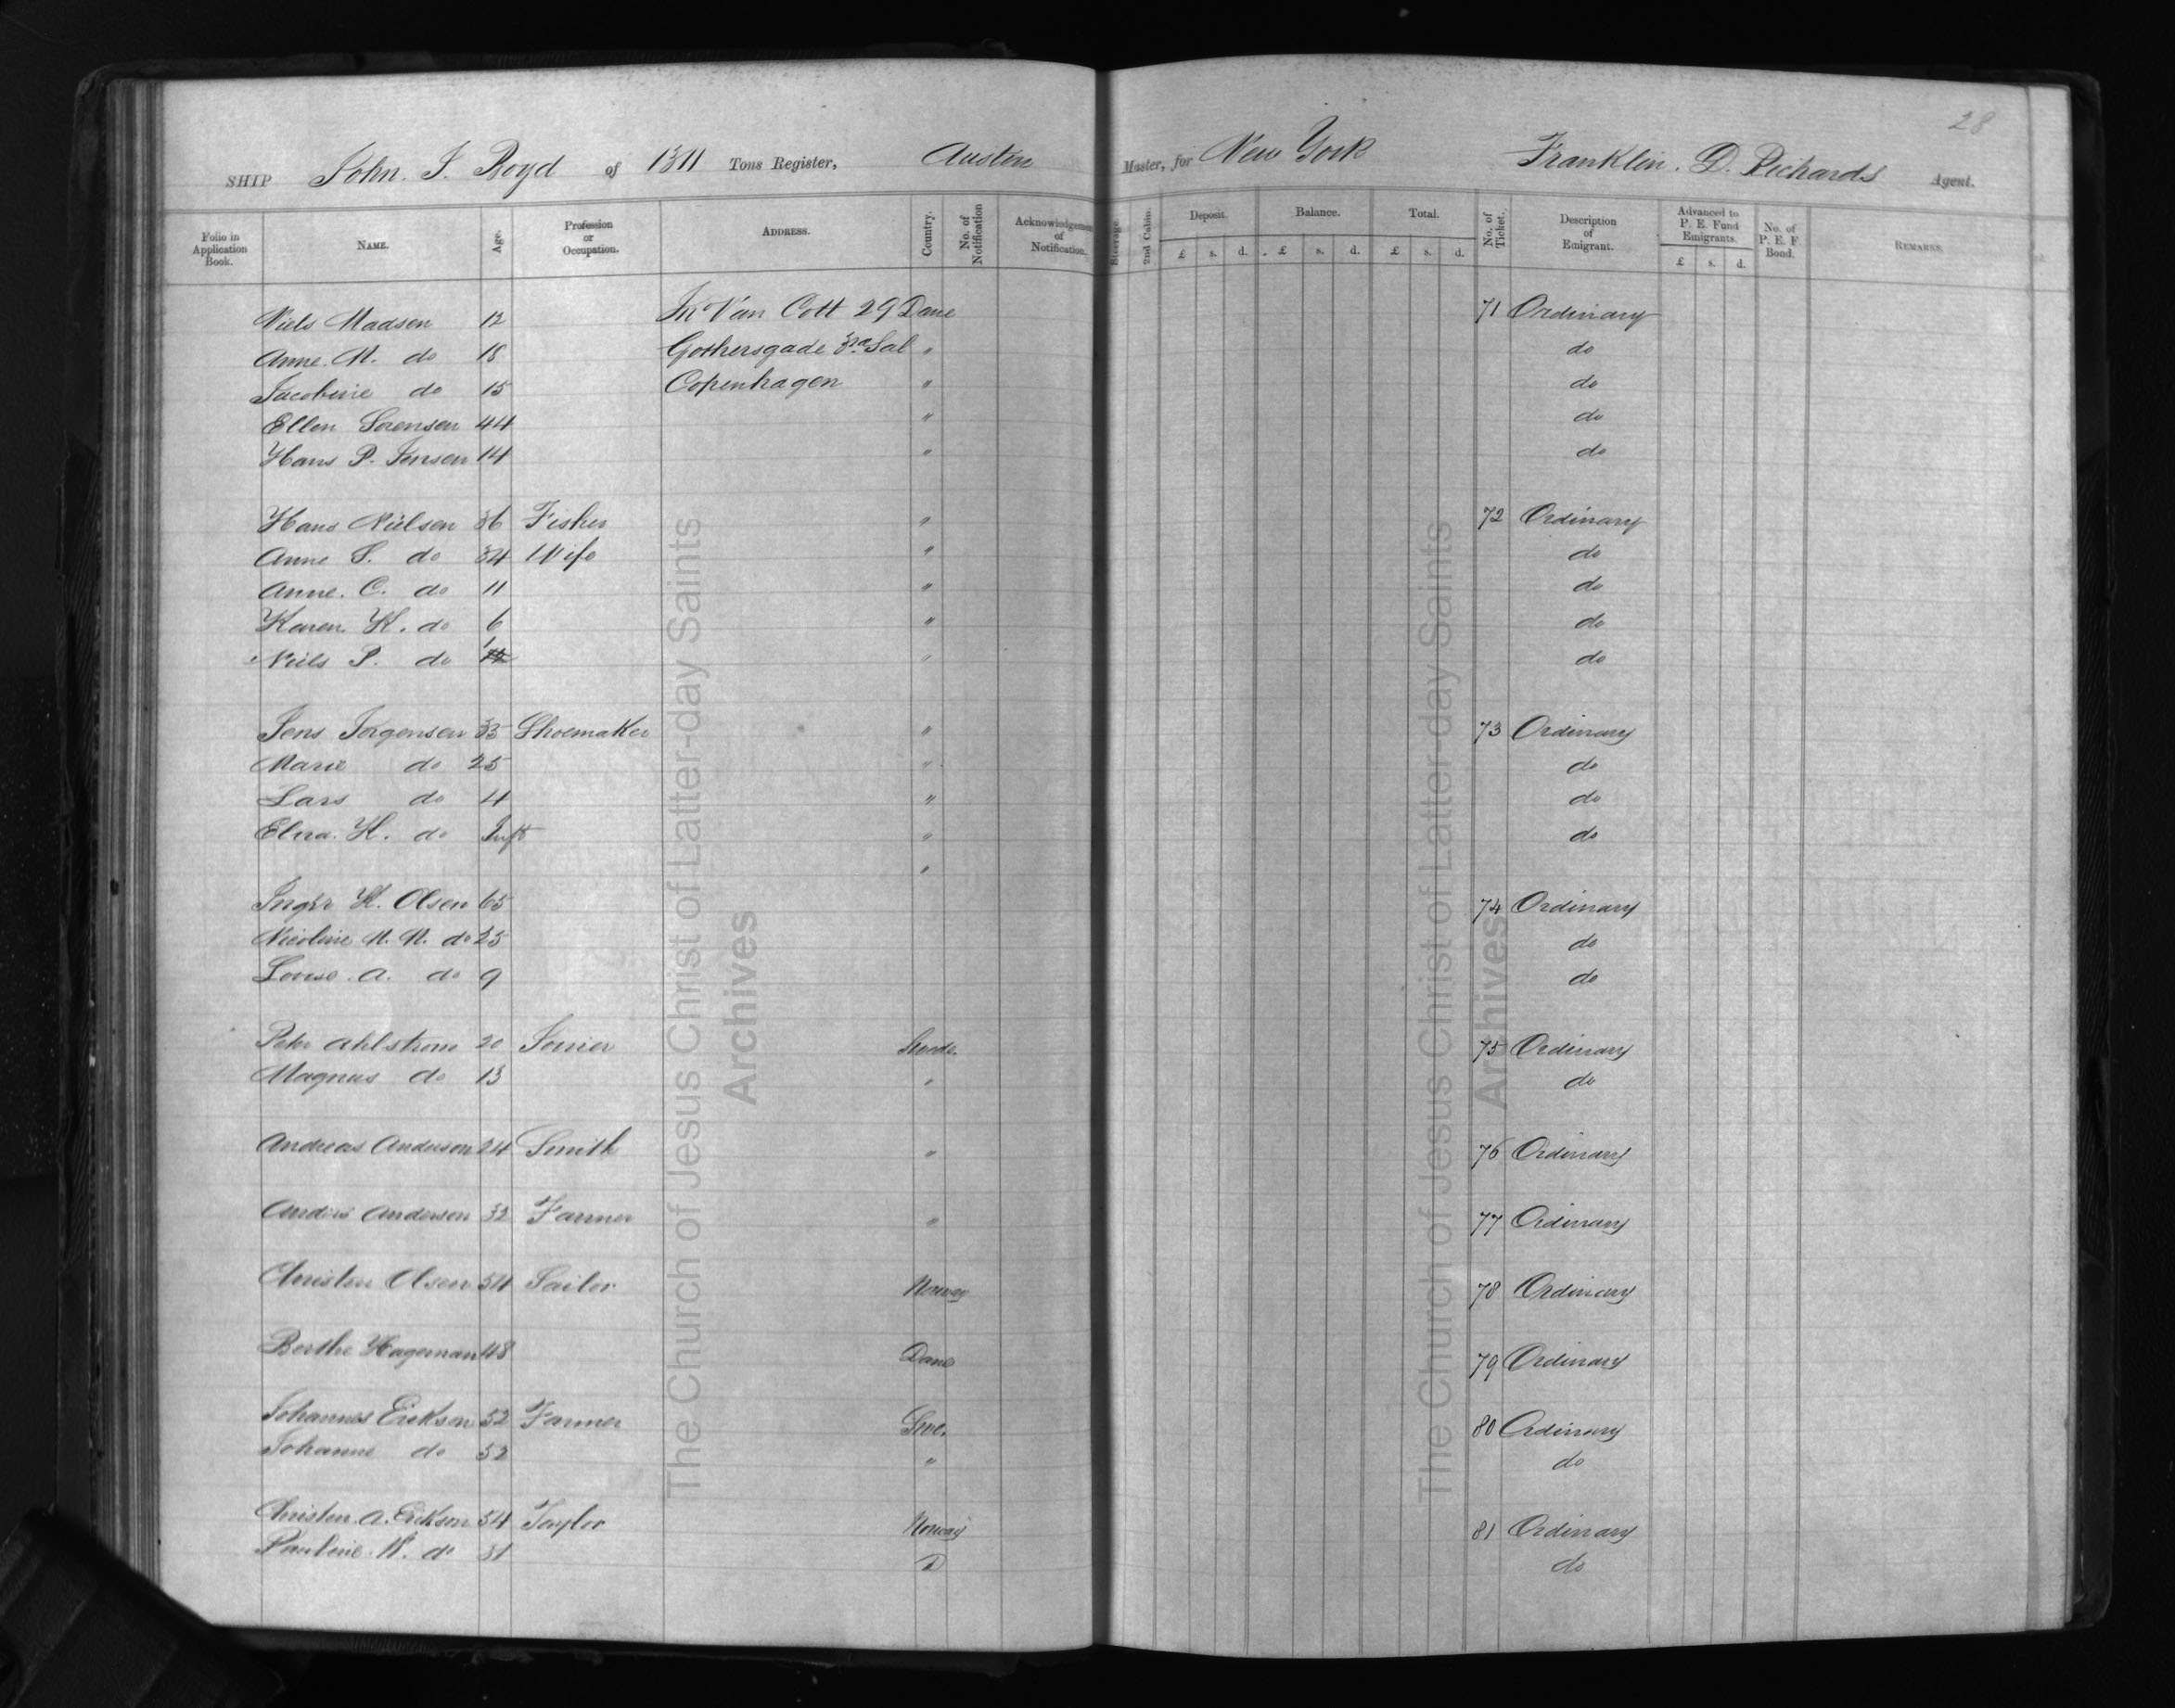 28
SHIP John. J. Boyd of 1311 Tons Register, Austin Master, for New York Franklin. D. Richards Agent.
Folio in Application Book. NAME. Age. Profession or Occupation. ADDRESS. Country. No. of Notification Acknowledgement of Notification. Steerage. 2nd Cabin. Deposit. Balance. Total. No. of Ticket. Description of Emigrant. Advanced to P. E. Fund Emigrants. No. of P. E. F. Bond. REMARKS.
£ s. d. £ s. d. £ s. d. £ s. d.
Niels Madsen 12 Jn Van Cott 29 Dane 71 Ordinary
Anne. M. do 18 Gothersgade 3rd Sal " do
Jacobine do 15 Copenhagen " do
Ellen Sorensen 44 " do
Hans P. Jensen 14 " do
Hans Nielsen 36 Fisher " 72 Ordinary
Anne S. do 34 Wife " do
Anne. C. do 11 " do
Karen. K. do 6 " do
Niels P. do 1 " do
Jens Jorgensen 33 Shoemaker " 73 Ordinary
Marie do 25 " do
Lars do 4 " do
H. do Inft " do
"
Inger K. Olsen 65 74 Ordinary
Nicoline N. N. do 25 do
Louise. A. do 9 do
Petr Ahlstrom 20 Joiner Swede. 75 Ordinary
Magnus do 13 " do
Andreas Anderson 24 Smith " 76 Ordinary
Anders Andersen 32 Farmer " 77 Ordinary
Christen Olsen 54 Sailor Norway 78 Ordinary
Berthe Hageman 48 Dane 79 Ordinary
Johannes Erikson 52 Farmer Swe. 80 Ordinary
Johanne do 52 " do
Christen. A. Erikson 54 Taylor Norway 81 Ordinary
Pauline. N. do 31 D do
The Church of Jesus Christ of Latter-day Saints
Archives
The Church of Jesus Christ of Latter-day Saints
Archives